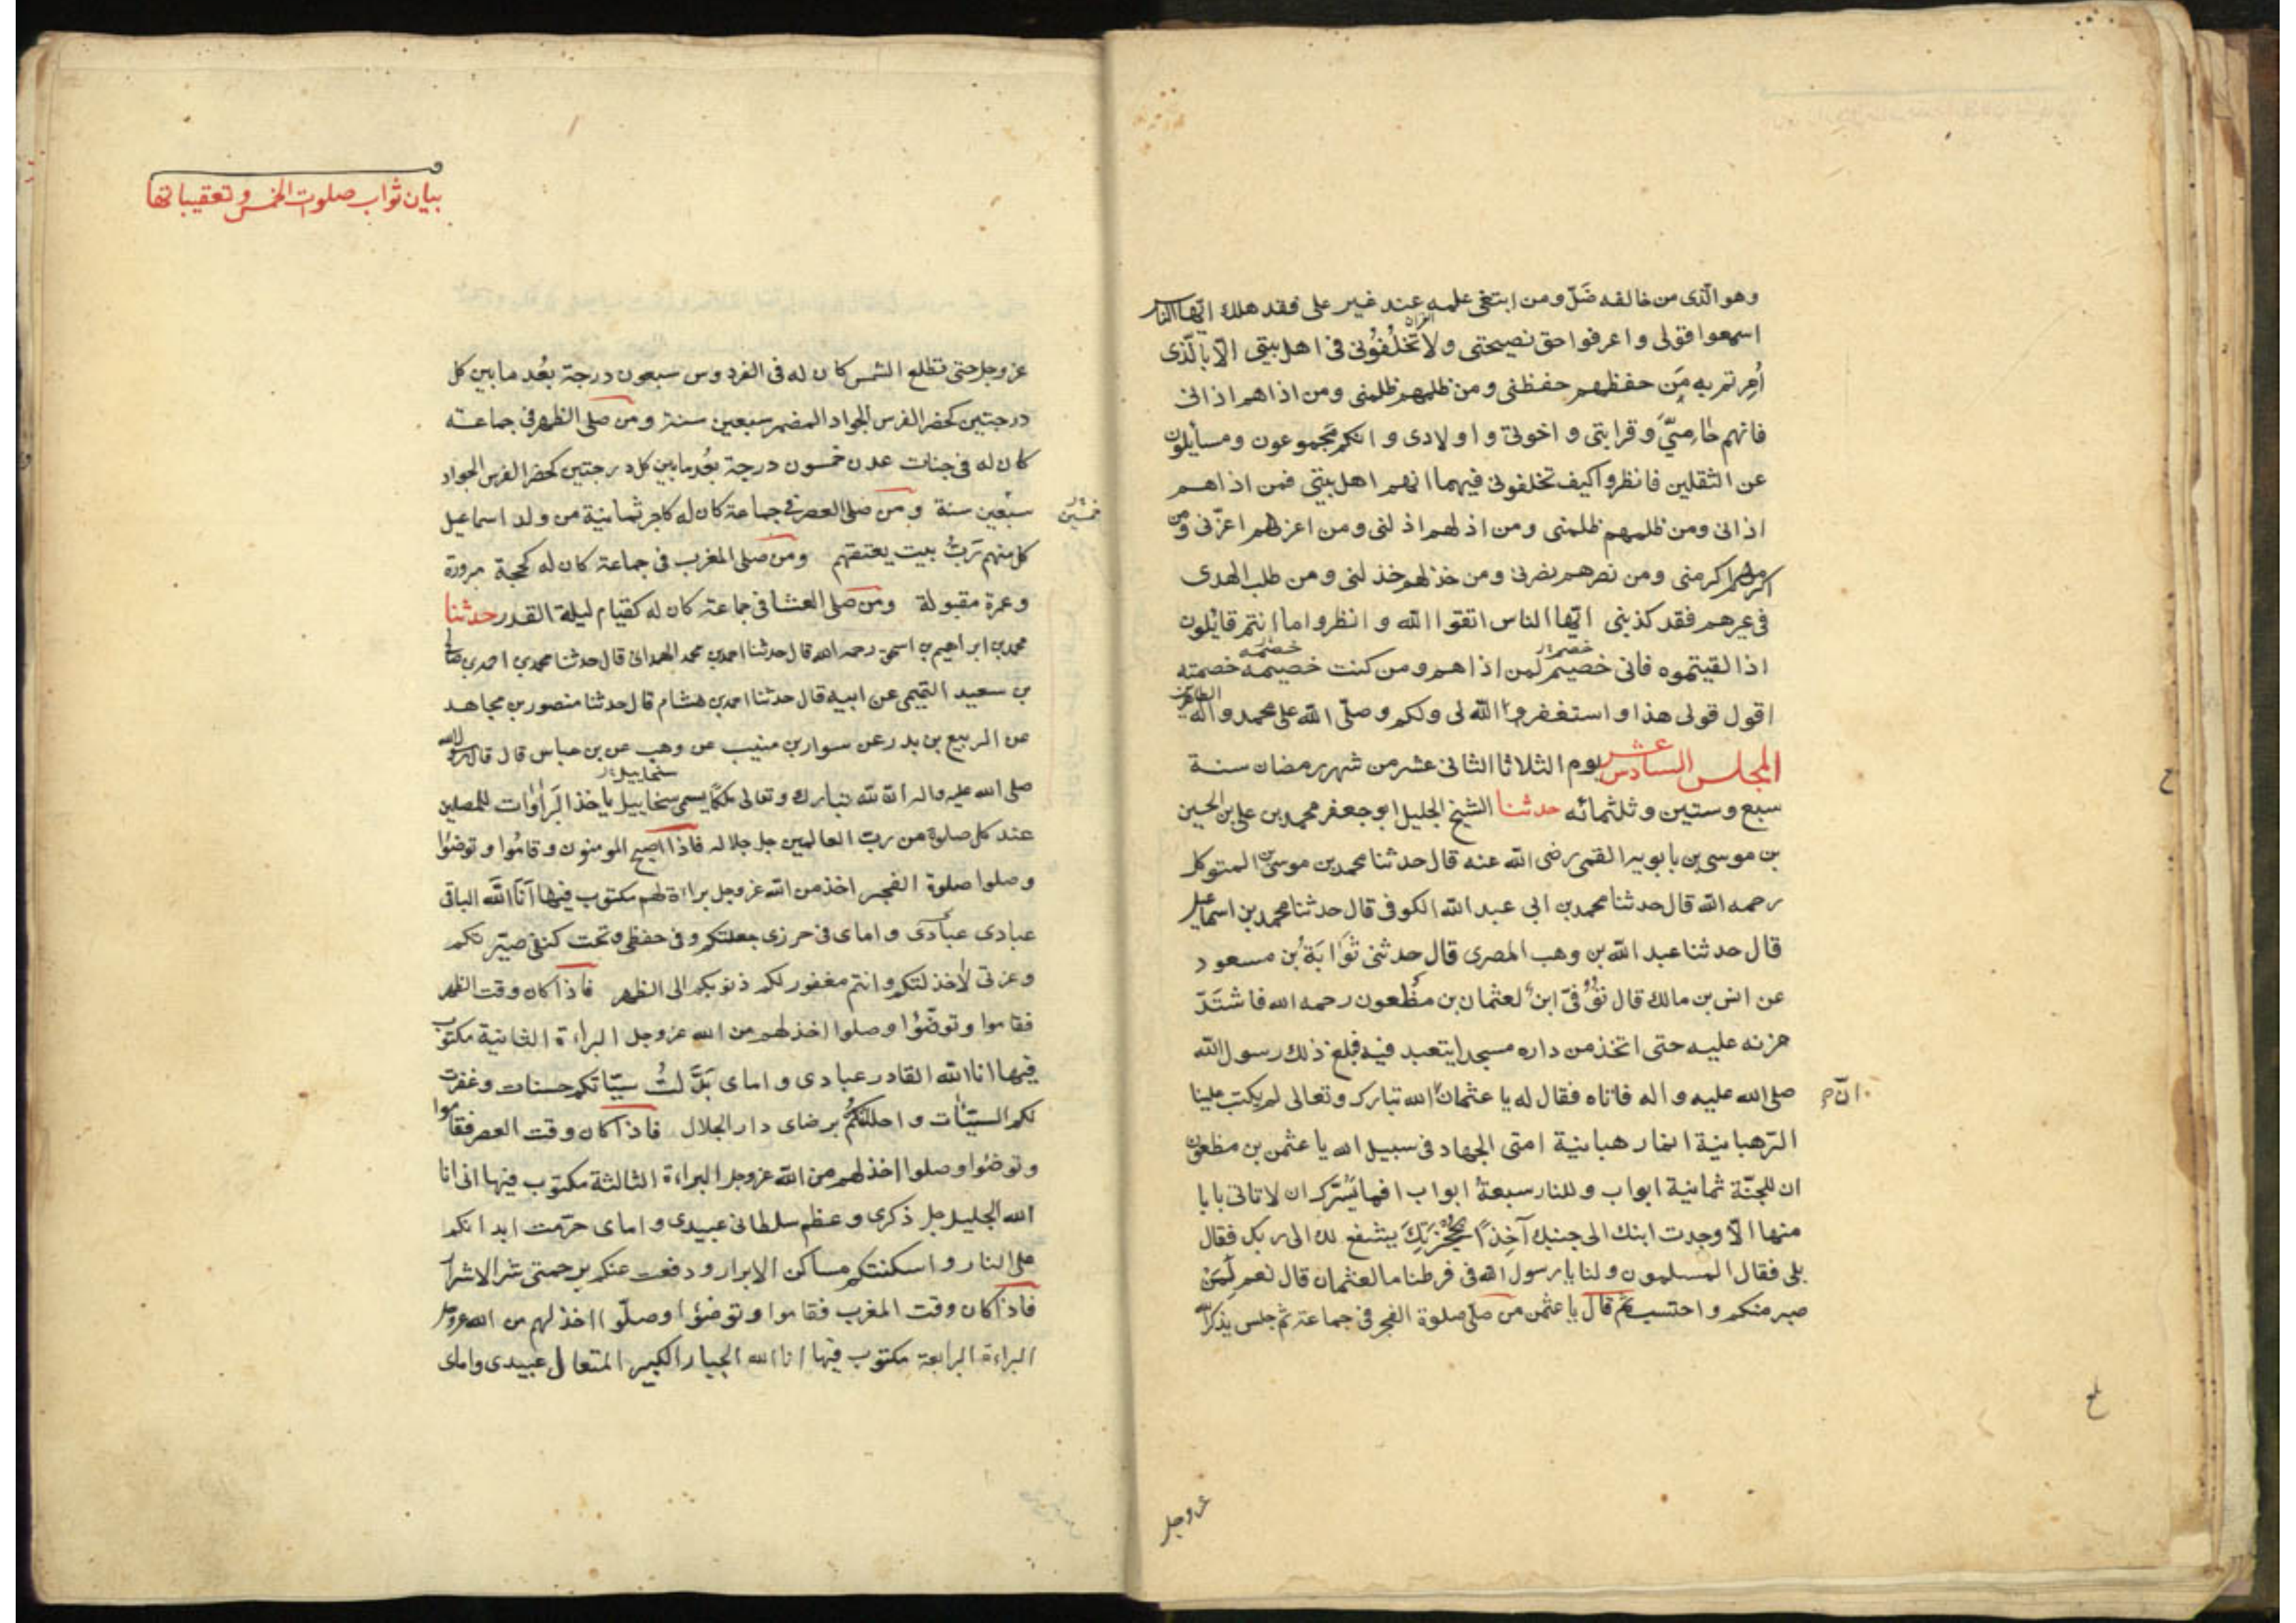 وهو الّذى من خالفه ضَلّ ومن ابتغى علمه عند غير على فقد هلك ايّها الناس
اسمعوا قولى واعرفوا حق نصيحتى ولا تَخلُفُونى فى اهل بيتى الّا بالّذى
اُمِرتم به مَن حفظهم حفظنى ومن ظلمهم ظلمنى ومن اذاهم اذانى
فانهم حامتىّ وقرابتى واخوتى واولادى وانكم مجموعون ومسايلون
عن الثقلين فانظروا كيف تخلفونى فيهما انهم اهل بيتى فمن اذاهم
اذانى ومن ظلمهم ظلمنى ومن اذلهم اذلنى ومن اعزهم اعزّنى ومن
اكرمهم اكرمنى ومن نصرهم نصرنى ومن خذلهم خذلنى ومن طلب الهدى
فى غيرهم فقد كذبنى ايّها الناس اتقوا الله وانظروا ما انتم قائلون
خصم خصمه
اذا لقيتموه فانى خصيم لمن اذاهم ومن كنت خصيمه خصمته
اقول قولى هذا واستغفر الله لى ولكم وصلّى الله على محمد واله الطاهرين
المجلس السادس عشر يوم الثلاثا الثانى عشر من شهر رمضان سنة
سبع وستين وثلثمائه حدثنا الشيخ الجليل ابو جعفر محمد بن على بن الحسين
بن موسى بن بابويه القمى رضى الله عنه قال حدثنا محمد بن موسى بن المتوكل
رحمه الله قال حدثنا محمد بن ابى عبد الله الكوفى قال حدثنا محمد بن اسماعيل
قال حدثنا عبد الله بن وهب المصرى قال حدثنى ثَوَابَة بُن مسعود
عن انس بن مالك قال تُوُفّى ابن لعثمان بن مظعون رحمه الله فاشتَدّ
حزنه عليه حتى اتخذ من داره مسجدا يتعبد فيه فبلغ ذلك رسول الله
صلى الله عليه واله فاتاه فقال له يا عثمان الله تبارك وتعالى لم يكتب علينا
انّ
الرّهبانية انما رهبانية امتى الجهاد فى سبيل الله يا عثمن بن مظعون
ان للجنّة ثمانية ابواب وللنار سبعة ابواب افما يَسُرّك ان لا تاتى بابا
منها الّا وجدت ابنك الى جنبك آخِذاً بحُجْزَتِكَ يشفع لك الى ربك فقال
بلى فقال المسلمون ولنا يا رسول الله فى فرطنا ما لعثمان قال نعم لِمَنْ
صبر منكم واحتسب ثم قال يا عثمن من صلّى صلوة الفجر فى جماعة ثم جلس يذكر الله
عز وجل
بيان ثواب صلوات الخمس وتعقيباتها
عز وجل حتى تطلع الشمس كان له فى الفردوس سبعون درجة بُعد ما بين كل
درجتين كحضر الفرس الجواد المضمر سبعين سنة ومن صلى الظهر فى جماعة
كان له فى جنات عدن خمسون درجة بُعد ما بين كل درجتين كحضر الفرس الجواد
سبعين سنة ومن صلى العصر فى جماعة كان له كاجر ثمانية من ولد اسماعيل
خمسين
كل منهم رَبُّ بيت يعتقهم ومن صلى المغرب فى جماعة كان له كحجة مبرورة
وعمرة مقبولة ومن صلى العشا فى جماعة كان له كقيام ليلة القدر حدثنا
محمد بن ابراهيم بن اسحق رحمه الله قال حدثنا احمد بن محمد الهمدانى قال حدثنا محمد بن احمد بن صالح
بن سعيد التميمى عن ابيه قال حدثنا احمد بن هشام قال حدثنا منصور بن مجاهد
عن الربيع بن بدر عن سوار بن منيب عن وهب عن بن عباس قال قال رسول الله
سنحاييل
صلى الله عليه واله ان لله تبارك وتعالى ملكًا يسمى سخاييل ياخذ البَراوَات للمصلين
عند كل صلوة من ربّ العالمين جل جلاله فاذا اصبح المومنون وقامُوا وتوضئوا
وصلوا صلوة الفجر اخذ من الله عز وجل براءة لهم مكتوب فيها اَنَا الله الباقى
عبادى عبادى واماى فى حرزى جعلتكم وفى حفظى وتحت كنفى صيّرتكم
وعزتى لاخذلتكم وانتم مغفور لكم ذنوبكم الى الظهر فاذا كان وقت الظهر
فقاموا وتوضّؤا وصلوا اخذ لهم من الله عز وجل البراءة الثانية مكتوب
فيها انا الله القادر عبادى واماى بَدَّلتُ سيّاتكم حسنات وغفرت
لكم السيّئات واحللتكُمُ برضاى دار الجلال فاذا كان وقت العصر فقاموا
وتوضئوا وصلوا اخذ لهم من الله عز وجل البراءة الثالثة مكتوب فيها انى انا
الله الجليل جل ذكرى وعظم سلطانى عبيدى واماى حرّمت ابدانكم
على النار واسكنتكم مساكن الابرار ودفعت عنكم برحمتى شر الاشرار
فاذا كان وقت المغرب فقاموا وتوضئوا وصلّوا اخذ لهم من الله عز وجل
البراءة الرابعة مكتوب فيها انا الله الجبار الكبير المتعال عبيدى واماى